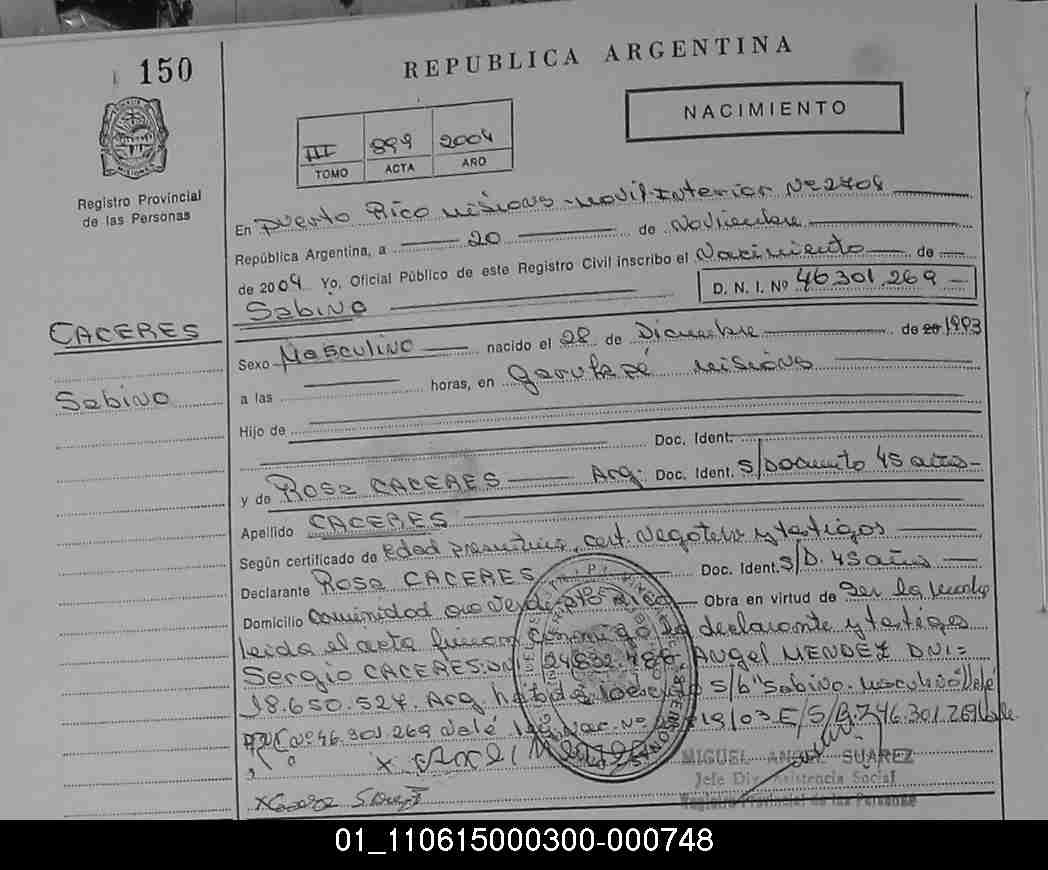 150
REPUBLICA ARGENTINA
NACIMIENTO
III 899 2004
TOMO ACTA AÑO
Registro Provincial
de las Personas
En Puerto Rico Misiones - Movil Interior Nº 2708
República Argentina, a 20 de Noviembre
de 2004 Yo, Oficial Público de este Registro Civil inscribo el Nacimiento de
Sabino D. N. I. Nº 46.301.269
CACERES
Sabino
Sexo Masculino nacido el 28 de Diciembre de 20 1993
a las horas, en Garuhapé Misiones
Hijo de
Doc. Ident.
y de Rosa CACERES Arg. Doc. Ident. s/Documento 45 años
Apellido CACERES
Según certificado de Edad presuntiva, cert. Negativo y testigos
Declarante Rosa CACERES Doc. Ident. s/D. 45 años
Domicilio Comunidad Obra en virtud de Ser la
Leida el acta firman conmigo la declarante y testigos
Sergio CACERES 24832.486 ANGEL MENDEZ DNI=
18.650.524. Arg. s/b "Sabino. Masculino" Vale
Nº 46.301.269 Vale 19/03 E/S/B 46.301.269 Vale
MIGUEL ANGEL SUAREZ
Jefe Div. Asistencia Social
Registro Provincial de las Personas
01_110615000300-000748